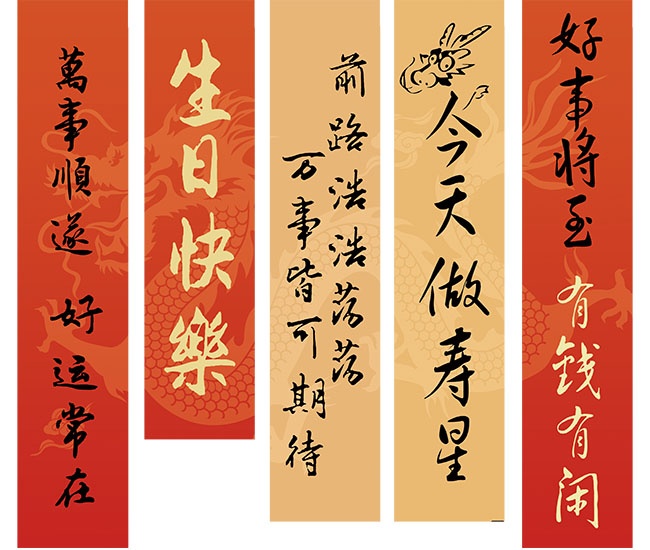 萬事順遂 好运常在
生日快樂
前路浩浩荡荡
万事皆可期待
今天做寿星
好事将至 有钱有闲